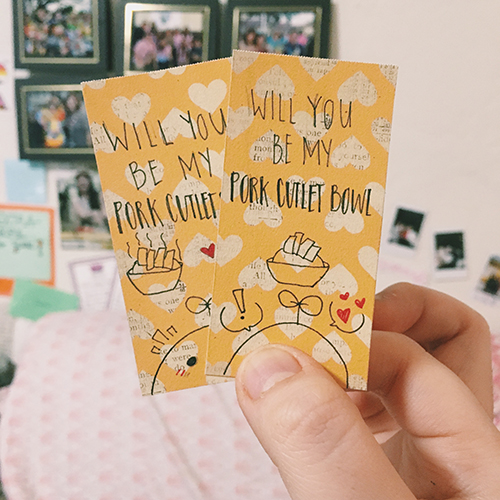 WILL YOU
BE MY
PORK CUTLET
WILL YOU
BE MY
PORK CUTLET BOWL
!